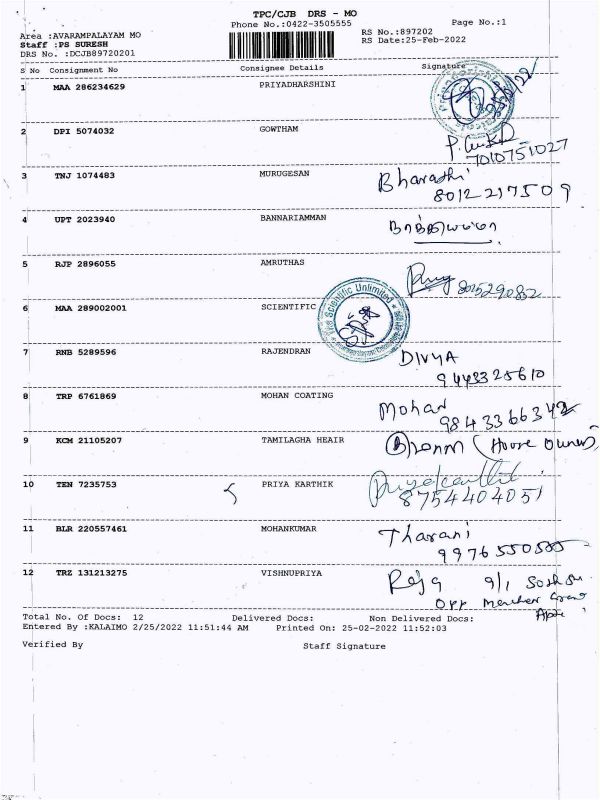 TPC/CJB DRS - MO
Phone No.:0422-3505555 Page No.:1
Area :AVARAMPALAYAM MO RS No.:897202
Staff :PS SURESH RS Date:25-Feb-2022
DRS No. :DCJB89720201
S No Consignment No Consignee Details Signature
1 MAA 286234629 PRIYADHARSHINI
2 DPI 5074032 GOWTHAM
7010751027
3 TNJ 1074483 MURUGESAN Bharathi
8012217509
4 UPT 2023940 BANNARIAMMAN
5 RJP 2896055 AMRUTHAS
6 MAA 289002001 SCIENTIFIC The Scientific Unlimited
7 RNB 5289596 RAJENDRAN DIVYA
9443325610
8 TRP 6761869 MOHAN COATING Mohan
9843366342
9 KCM 21105207 TAMILAGHA HEAIR (House owner)
10 TEN 7235753 PRIYA KARTHIK
8754404051
11 BLR 220557461 MOHANKUMAR Tharani
9976550585
12 TRZ 131213275 VISHNUPRIYA Raja 9/1
Opp
Total No. Of Docs: 12 Delivered Docs: Non Delivered Docs:
Entered By :KALAIMO 2/25/2022 11:51:44 AM Printed On: 25-02-2022 11:52:03
Verified By Staff Signature